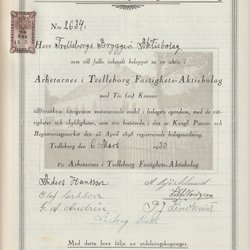 No 2634.
Herr Trelleborgs Bryggeri Aktiebolag
som till fullo inbetalt beloppet av en aktie i
Arbetarnes i Trelleborg Fastighets-Aktiebolag
med Tio (10) Kronor
tillförsäkras härigenom motsvarande andel i bolagets egendom, med de rät-
tigheter och skyldigheter, som äro bestämda i den av Kungl. Patent- och
Registreringsverket den 26 april 1898 registrerade bolagsordning.
Trelleborg den 6 Mars 1930
För Arbetarnes i Trelleborg Fastighets-Aktiebolag.
Anders Hansson
A Björklund
Olof Nilsson
Ludvig
Med detta brev följa 20 utdelningskuponger.